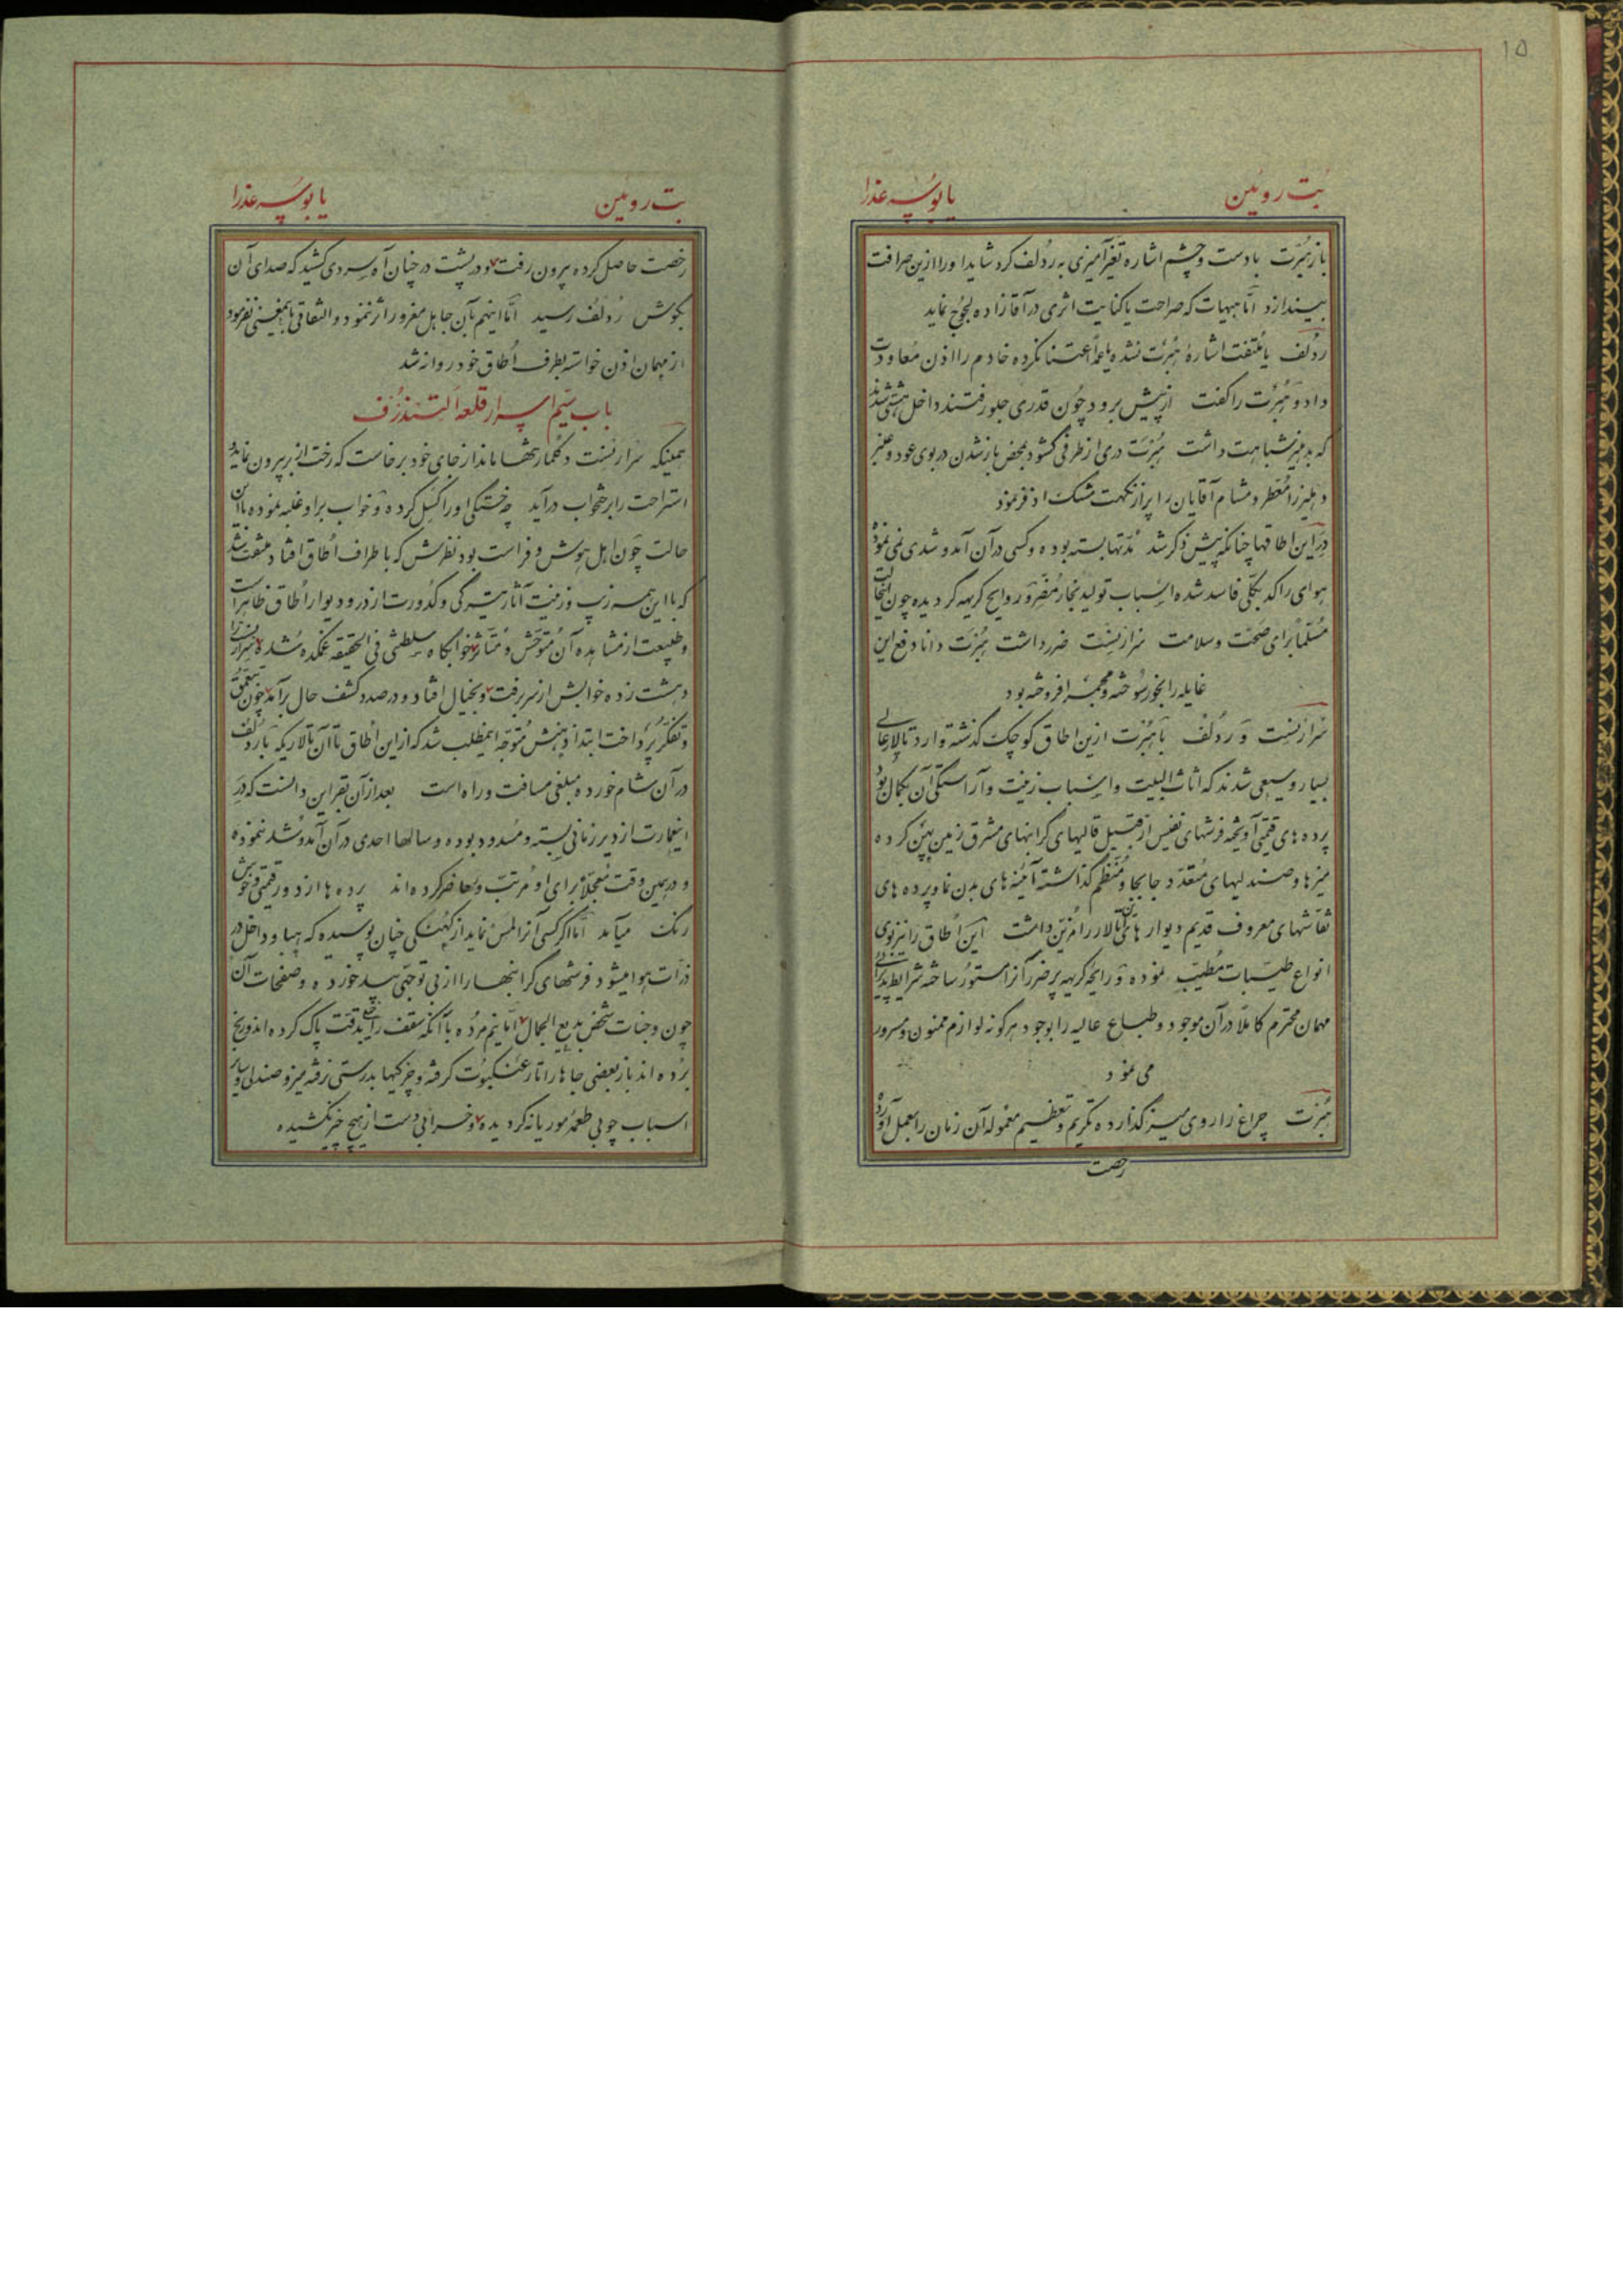 ۱۵
بت روئین یا بوسه عذرا
باز هُبِّرت با دست و چشم اشاره تغیّرآمیزی به رُدلف کرد شاید او را ازین صرافت
بیندازد امّا هیهات که صراحت یا کنایت اثری در آقازاده لجوج نماید
ردُلف یا ملتفت اشارهٔ هُبِرت نشده یا عمداً اعتنا نکرده خادم را اذن معاودت
داد و هُبِرت را گفت از پیش برود چون قدری جلو رفتند داخل هشتی شدند
که بدهلیز شباهت داشت هُبِرت دری از طرفی گشود بمحض باز شدن در بوی عود و عنبر
دهلیز را معطر و مشام آقایان را پر از نکهت مشک اذفر نمود
در این اطاقها چنانکه پیش ذکر شد مدّتها بسته بوده و کسی در آن آمد و شدی نمی نموده
هوای راکد بکلّی فاسد شده اسباب تولید بخار مضرّ و روایح کریهه گردیده چون اینحالت
مسلّماً برای صحّت و سلامت سرارنست ضرر داشت هُبِرت دانا دفع این
غایله را بخور سوخته و مجمره افروخته بود
سرارنست و ردلف با هُبِرت ازین اطاق کوچک گذشته وارد تالار عالی
بسیار وسیعی شدند که اثاث البیت و اسباب زینت و آراستگی آن بکمال بود
پرده های قیمتی آویخته فرشهای نفیس از قبیل قالیهای گرانبهای مشرق زمین پهن کرده
میزها و صندلیهای متعدّد جابجا و منظم گذاشته آئینه های بدن نما و پرده های
نقاشهای معروف قدیم دیوارهای آن تالار را مزیّن داشت این اطاق را نیز بوی
انواع طیّبات مُطیّب نموده و رایحه کریهه پر ضرر آنرا مستور ساخته شرایط پذیرائی
مهمان محترم کاملاً در آن موجود و طباع عالیه را بوجود هرگونه لوازم ممنون و مسرور
می نمود
هُبِرت چراغ را روی میز گذارده تکریم و تعظیم معموله آن زمان را بعمل آورده
رخصت
بت روئین یا بوسه عذرا
رخصت حاصل کرده بیرون رفت و در پشت در چنان آه سردی کشید که صدای آن
بگوش رُدلُف رسید امّا اینهم بآن جاهل مغرور اثر ننمود و التفاقی باینمعنی نفرمود
از مهمان اذن خواسته بطرف اُطاق خود روانه شد
باب سیّم اسرار قلعه آلتندُرُف
همینکه سرارنست دکلمار تنها ماند از جای خود برخاست که رخت از بر بیرون نماید و
استراحت را برختخواب درآید چه خستگی او را کسل کرده و خواب بر او غلبه نموده با این
حالت چون اهل هوش و فراست بود نظرش که باطراف اُطاق افتاد ملتفت شد
که با این همه زیب و زینت آثار تیرگی و کدورت از در و دیوار اُطاق ظاهر است
و طبیعت از مشاهده آن متوحّش و متأثر خوابگاه سلطنتی فی الحقیقه غمکده شده سرارنست را
دهشت زده خوابش از سر برفت و بخیال افتاد و در صدد کشف حال برآمد چون بتعمّق
و تفکّر پرداخت ابتدا ذهنش متوجّه اینمطلب شد که از این اُطاق تا آن تالاریکه با رُدلُف
در آن شام خورده مبلغی مسافت و راه است بعد از آن بقراین دانست که در
اینعمارت از دیر زمانی بسته و مسدود بوده و سالها احدی در آن آمد و شد ننموده
و در همین وقت معجّلاً برای او مرتّب و حاضر کرده اند پرده ها از دور قیمتی و خوش
رنگ میآید امّا اگر کسی آنرا لمس نماید از کهنگی چنان پوسیده که هبا و داخل در
ذرّات هوا میشود فرشهای گرانبها را از بی توجّهی بید خورده و صفحات آن
چون وجنات شخص بدیع الجمال امّا نیم مرده با آنکه سقف را بدقّت پاک کرده اند و رنج
برده اند باز بعضی جاها را تار عنکبوت گرفته و چرکیها بدرستی نرفته میز و صندلی و سایر
اسباب چوبی طعمهٔ موریانه گردیده و خرابی دست از هیچ چیز نکشیده